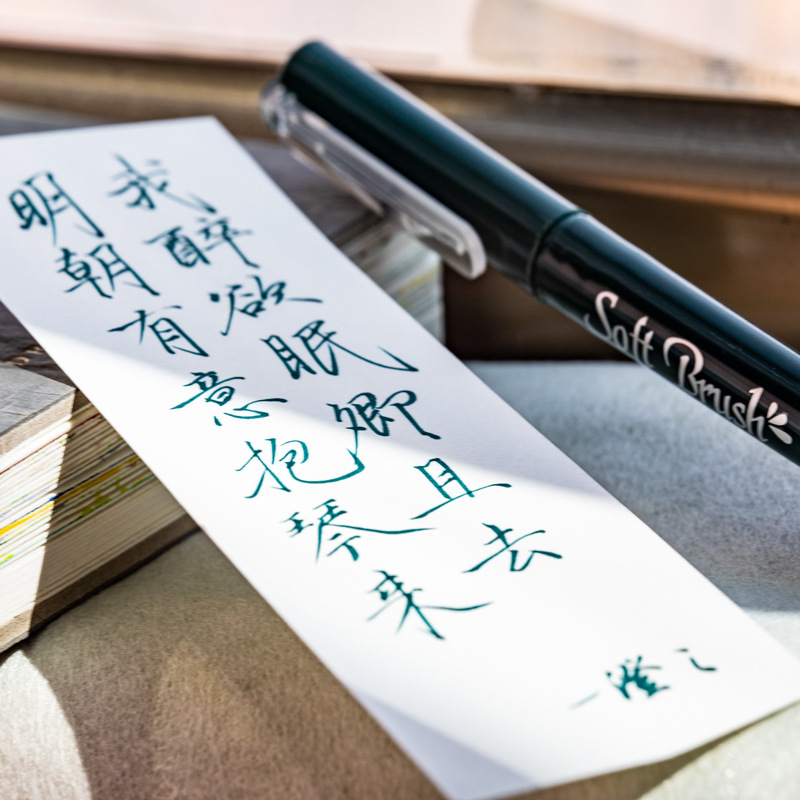 我醉欲眠卿且去
明朝有意抱琴来
Soft Brush